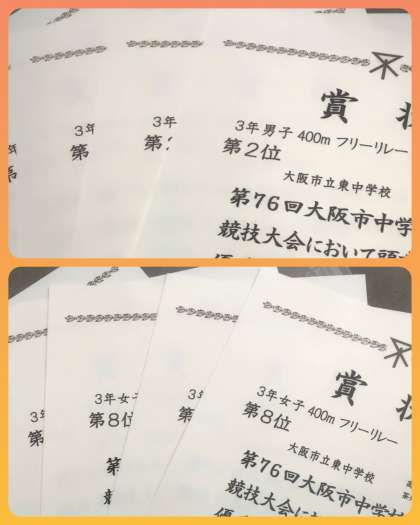 3年
第
3年
第2
賞 状
3年男子 400m フリーリレー
第2位
大阪市立東中学校
第76回大阪市中学
競技大会において頭
第
3年
第
3年女子
第8位
第
3年
第
賞 状
3年女子 400m フリーリレー
第8位
大阪市立東中学校
第76回大阪市中学校
競技大会にお